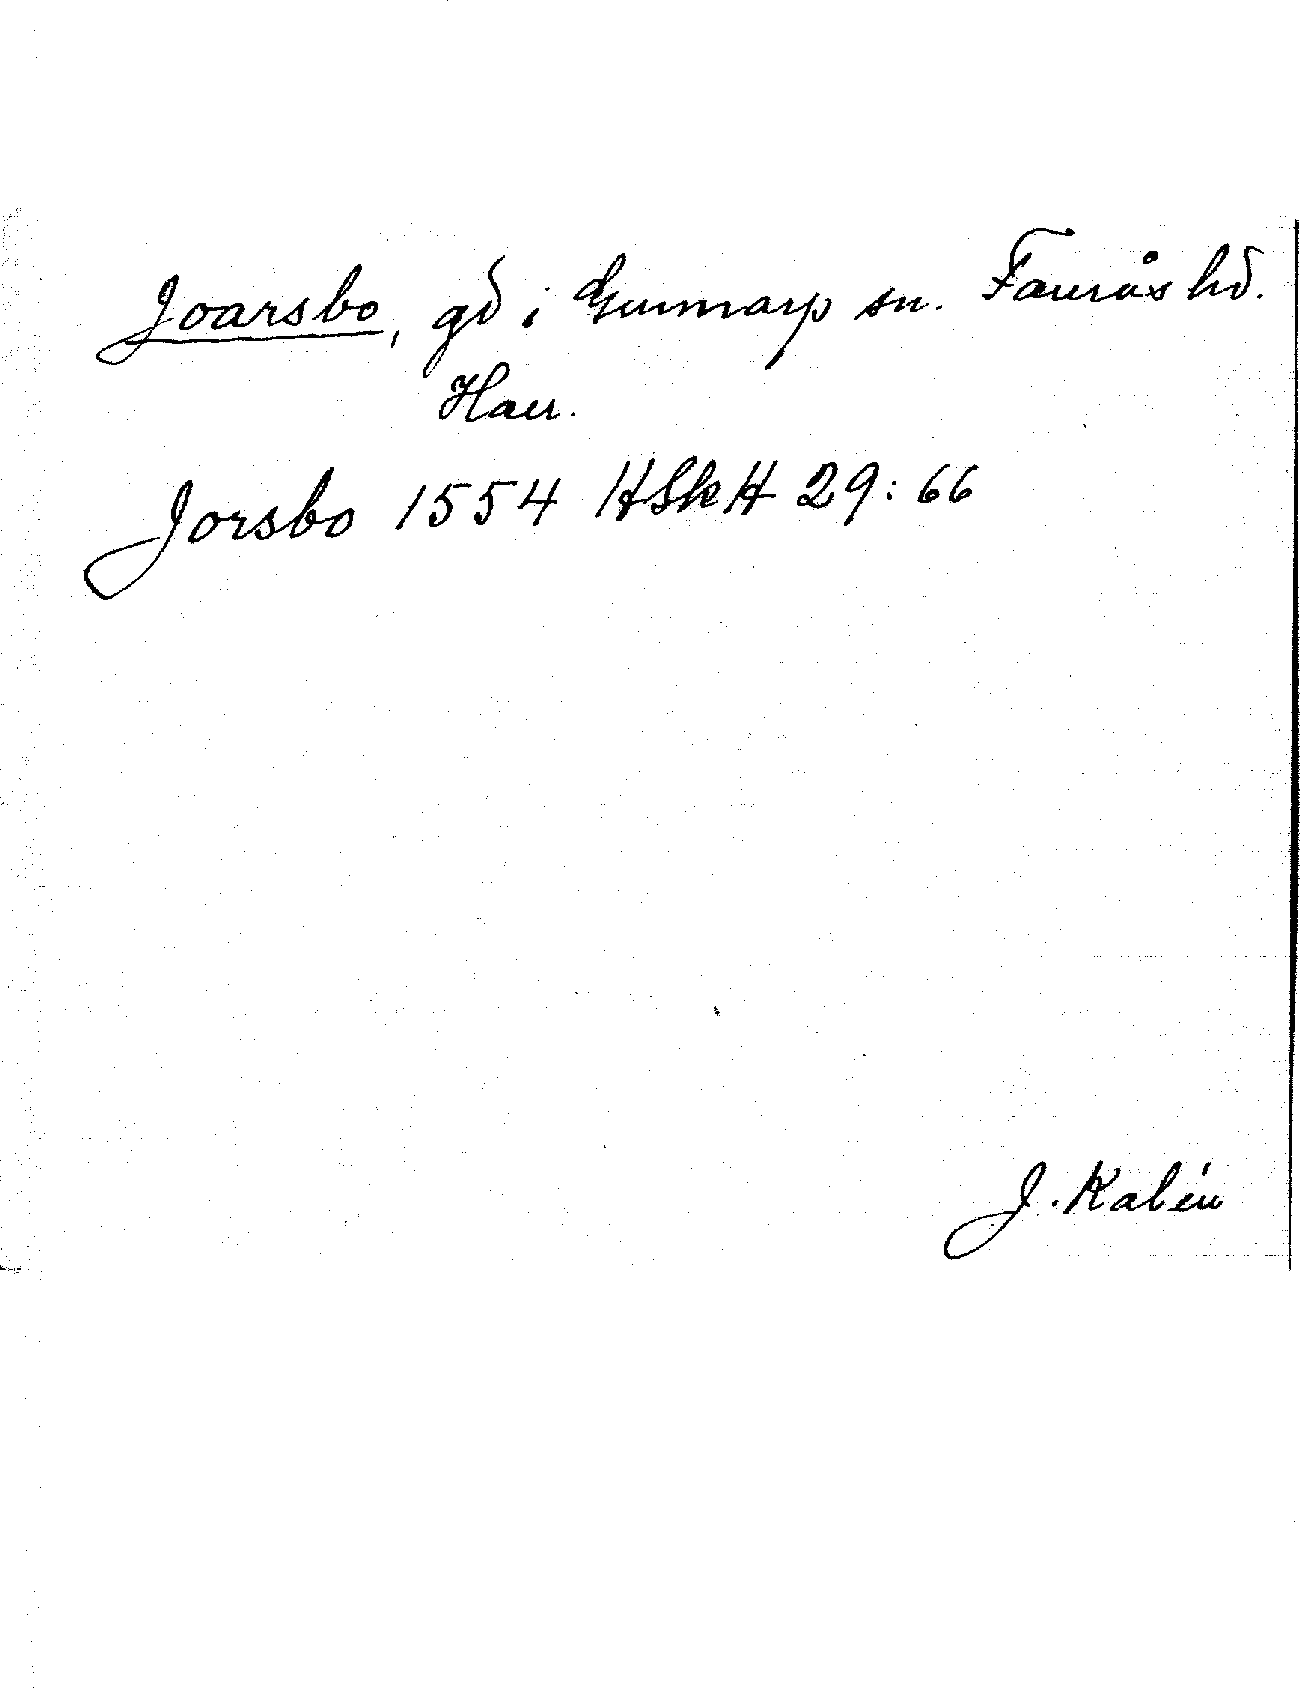 Joarsbo, gd i Gunnarp sn. Faurås hd.
Hall.
Jorsbo 1554 HSkH 29:66
J. Kalén